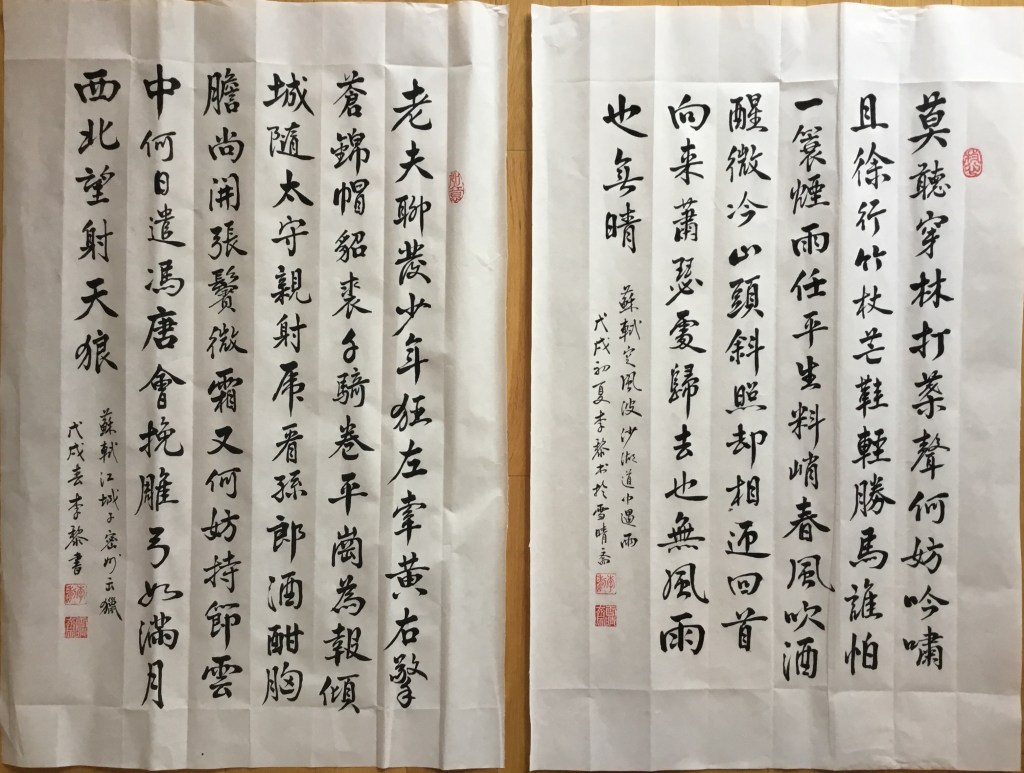 莫聽穿林打葉聲何妨吟嘯
且徐行竹杖芒鞋輕勝馬誰怕
一簑煙雨任平生料峭春風吹酒
醒微冷山頭斜照却相迎回首
向来蕭瑟處歸去也無風雨
也無晴
蘇軾定風波沙湖道中遇雨
戊戌初夏李黎书於雪晴斋
老夫聊發少年狂左牽黃右擎
蒼錦帽貂裘千騎卷平崗為報傾
城隨太守親射虎看孫郎酒酣胸
膽尚開張鬢微霜又何妨持節雲
中何日遣馮唐會挽雕弓如滿月
西北望射天狼
蘇軾江城子密州出獵
戊戌春李黎書